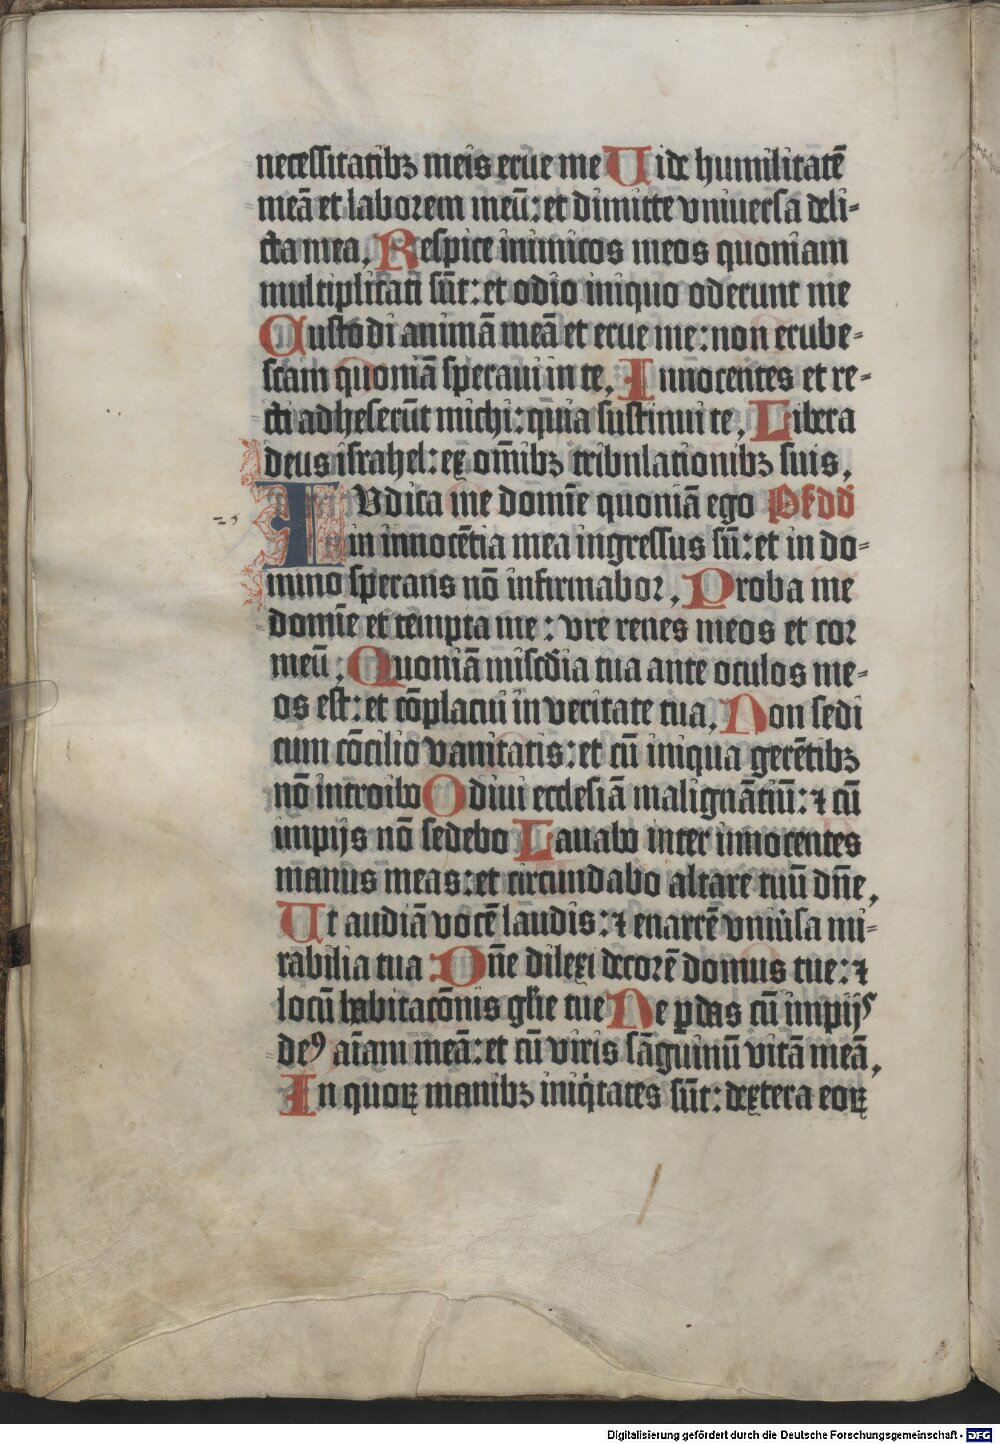 necessitatibꝫ meis erue me Uide humilitatē
meā et laborem meū: et dimitte vniuersa deli-
cta mea, Respice inimicos meos quoniam
multiplicati sūt: et odio iniquo oderunt me
Custodi animā meā et erue me: non erube-
scam quoniā speraui in te, Innocentes et re-
cti adheserūt michi: quia sustinui te, Libera
deus israhel: ex om̄ibꝫ tribulationibꝫ suis,
IUdica me domīe quoniā ego Ps dd
in innocētia mea ingressus sū: et in do-
mino sperans nō infirmabor, Proba me
domīe et tempta me: vre renes meos et cor
meū, Quoniā misc̄dia tua ante oculos me-
os est: et cōplacui in veritate tua, Non sedi
cum cōcilio vanitatis: et cū iniqua gerētibꝫ
nō introibo Odiui ecclesiā malignātiū: ⁊ cū
impijs nō sedebo Lauabo inter innocentes
manus meas: et circundabo altare tuū dn̄e,
Ut audiā vocē laudis: ⁊ enarrē vniu̇sa mi-
rabilia tua: Dn̄e dilexi decorē domus tue: ⁊
locū habitatōnis gl̄ie tue Ne ꝑdas cū impijs
deꝰ aīam meā: et cū viris sāguinū vitā meā,
In quoꝝ manibꝫ iniq̇tates sūt: dextera eoꝝ
Digitalisierung gefördert durch die Deutsche Forschungsgemeinschaft - DFG